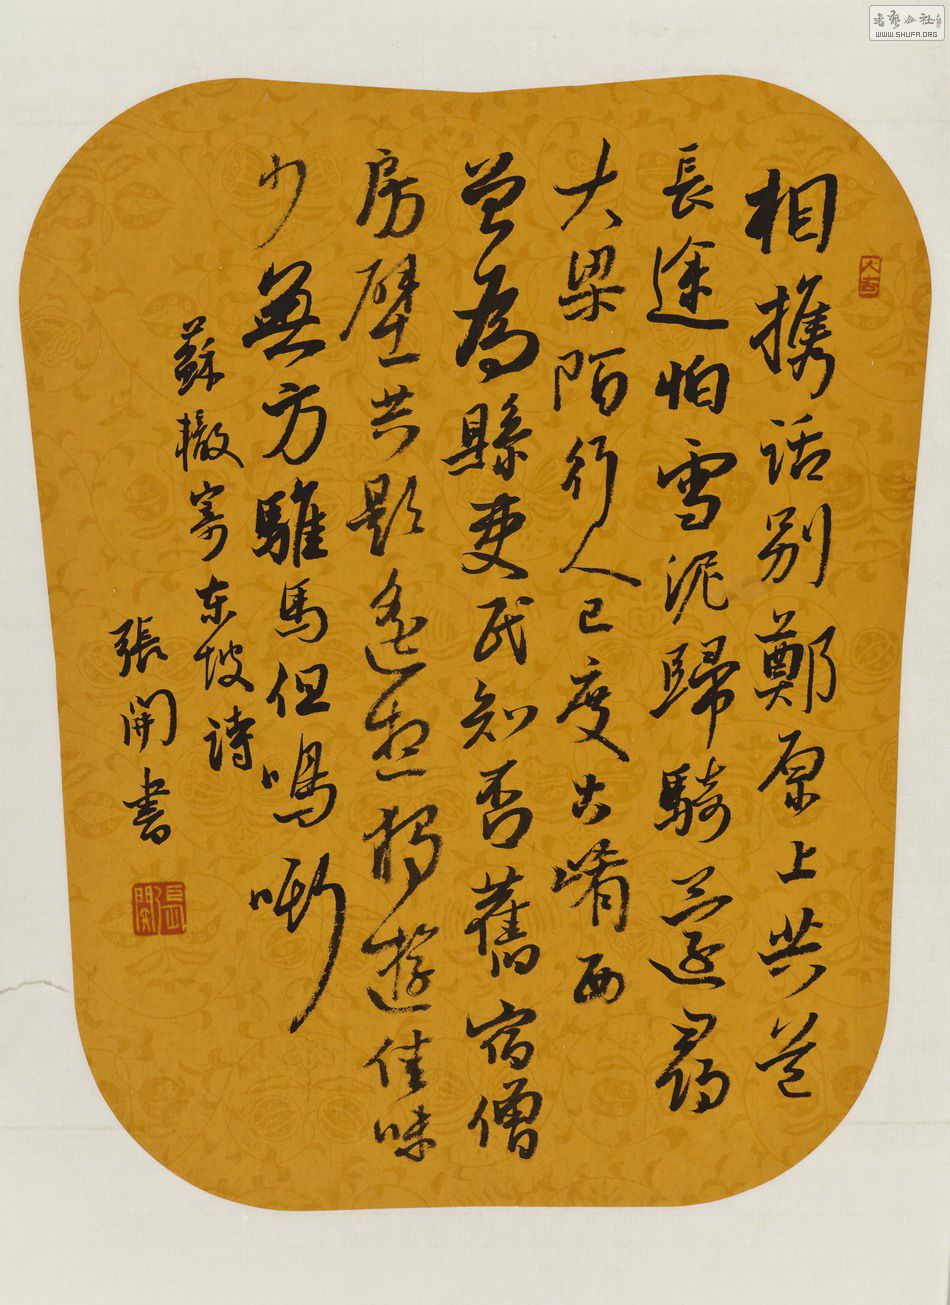 相携話別鄭原上共道
長途怕雪泥歸騎還尋
大梁陌行人已度古崤西
曾為縣吏民知否舊宿僧
房壁共題遙想獨遊佳味
少無方騅馬但鳴嘶
蘇轍寄东坡詩
張開書
張開
大吉
書藝公社
WWW.SHUFA.ORG